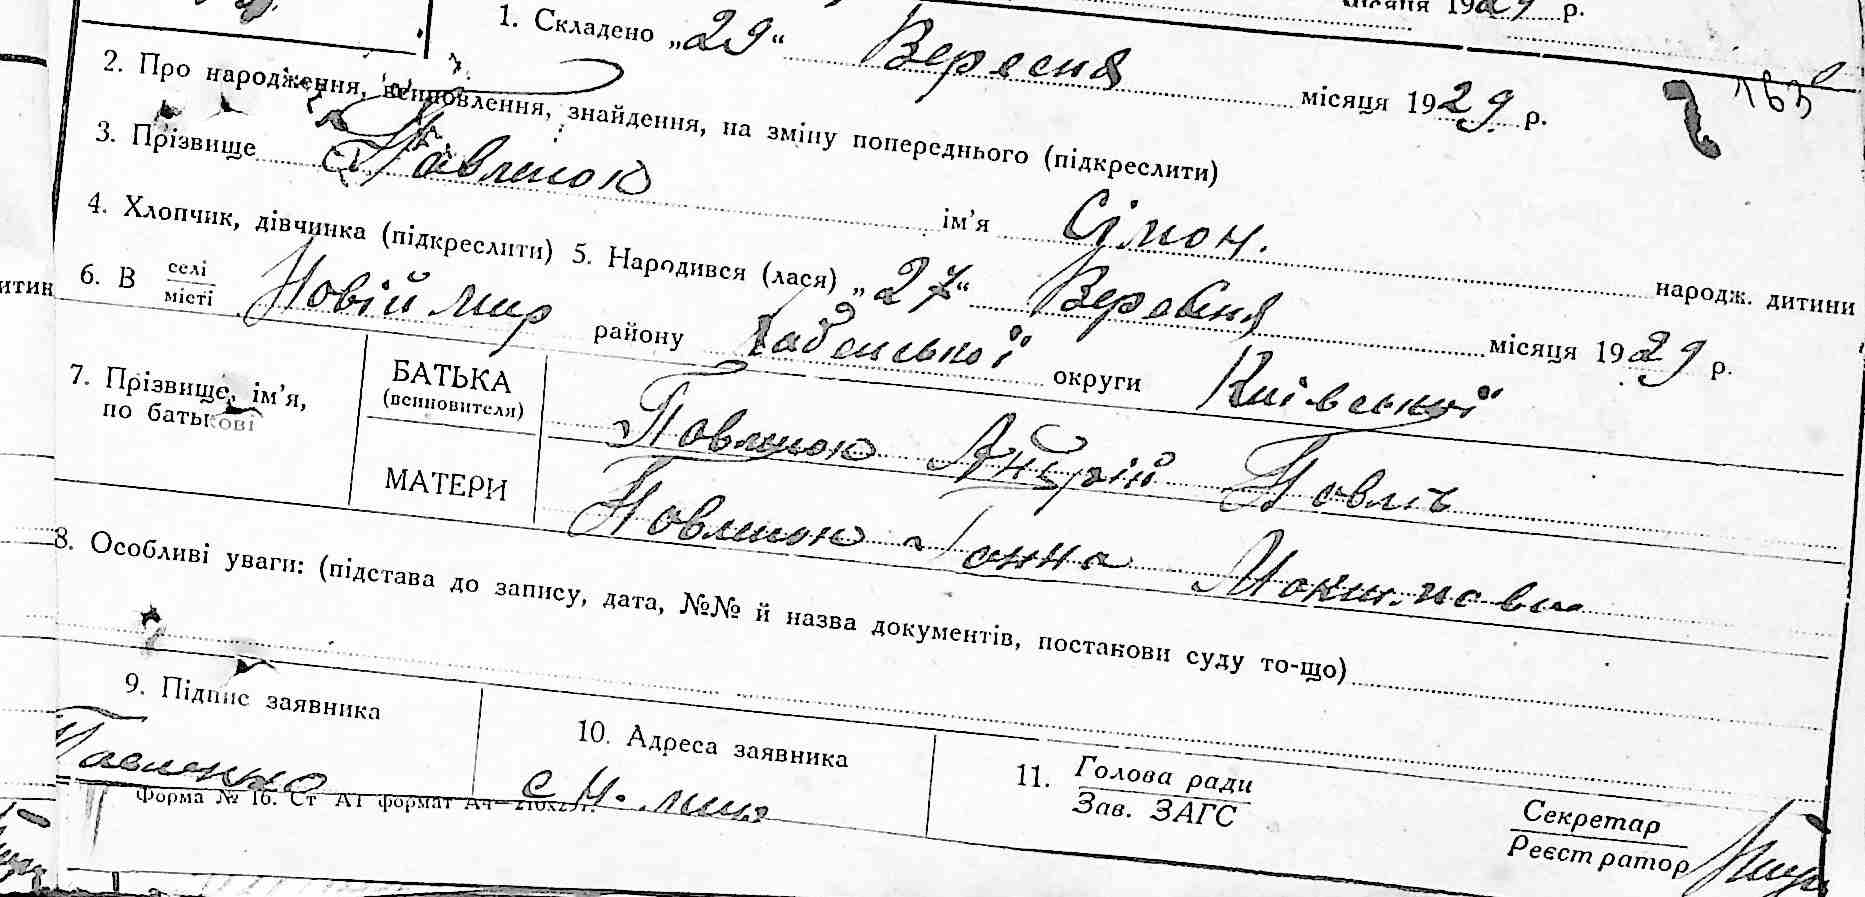 1. Складено „29“ Вересня місяця 1929 р.
2. Про народження, всиновлення, знайдення, на зміну попереднього (підкреслити)
3. Прізвище Павленок ім’я Сімон. народж. дитини
4. Хлопчик, дівчинка (підкреслити) 5. Народився (лася) „27“ Вересня місяця 1929 р.
6. В селі місті Новій мир району Хабенської округи Київської
7. Прізвище, ім’я, по батькові
БАТЬКА (всиновителя) Павленок Андрій Павлів
МАТЕРИ Павленок Ганна
8. Особливі уваги: (підстава до запису, дата, №№ й назва документів, постанови суду то-що)
9. Підпис заявника
10. Адреса заявника
11. Голова ради Зав. ЗАГС
Секретар Реєстратор
Павленко
с Н. мир
Форма № 16. Ст А1 формат А4—210х297.